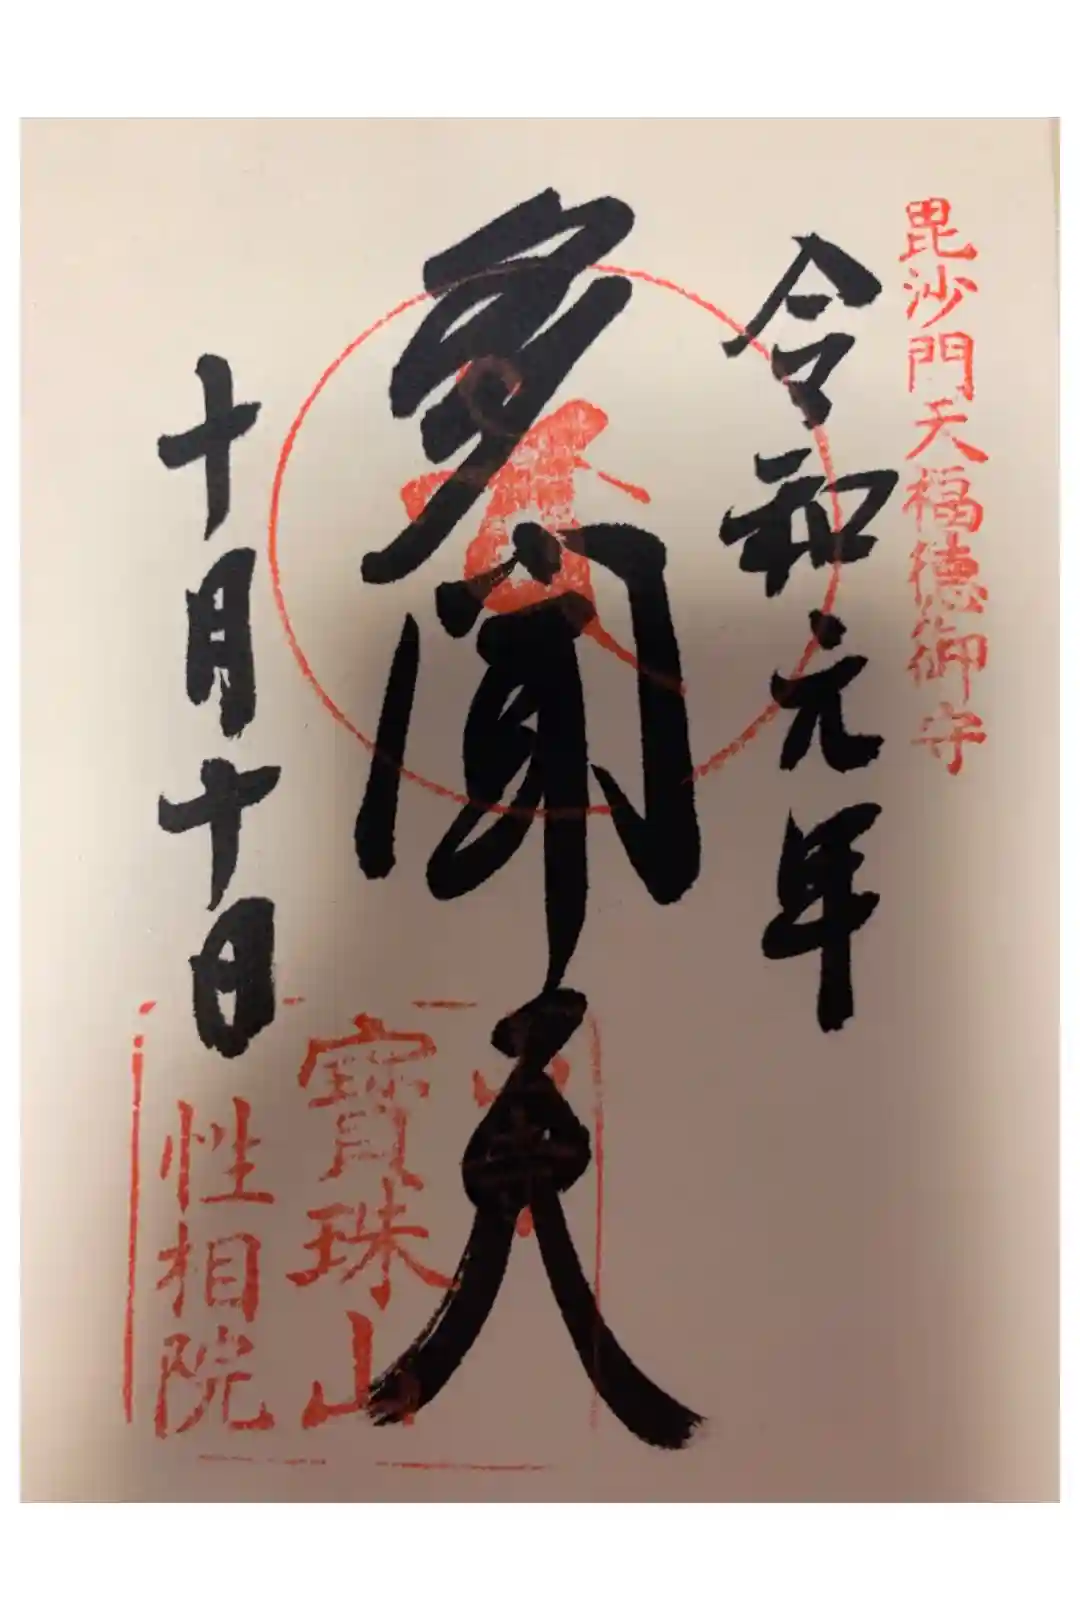 毘沙門天福徳御守
令和元年
多聞天
山寺
寳珠山
性相院
十月十日